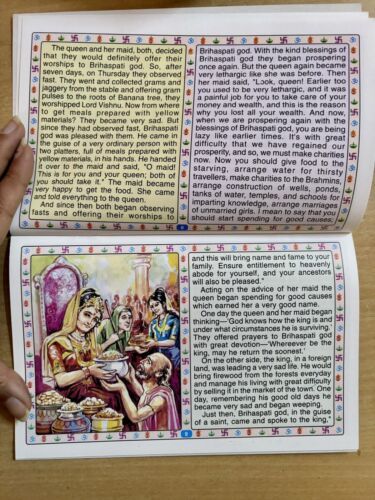 The queen and her maid, both, decided
that they would definitely offer their
worships to Brihaspati god. So, after
seven days, on Thursday they observed
fast. They went and collected grams and
jaggery from the stable and offering gram
pulses to the roots of Banana tree, they
worshipped Lord Vishnu. Now from where
to get meals prepared with yellow
materials? They became very sad. But
since they had observed fast, Brihaspati
god was pleased with them. He came in
the guise of a very ordinary person with
two platters, full of meals prepared with
yellow materials, in his hands. He handed
it over to the maid and said, "O maid!
This is for you and your queen; both of
you should take it." The maid became
very happy to get the food. She came
and told everything to the queen.
And since then both began observing
fasts and offering their worships to
Brihaspati god. With the kind blessings of
Brihaspati god they began prospering
once again. But the queen again became
very lethargic like she was before. Then
her maid said, "Look, queen! Earlier too
you used to be very lethargic, and it was
a painful job for you to take care of your
money and wealth, and this is the reason
why you lost all your wealth. And now,
when we are prospering again with the
blessings of Brihaspati god, you are being
lazy like earlier times. It's with great
difficulty that we have regained our
prosperity, and so, we must make charities
now. Now you should give food to the
starving, arrange water for thirsty
travellers, make charities to the Brahmins,
arrange construction of wells, ponds,
tanks of water, temples, and schools for
imparting knowledge, arrange marriages
of unmarried girls. I mean to say that you
should start spending for good causes;
and this will bring name and fame to your
family. Ensure entitlement to heavenly
abode for yourself, and your ancestors
will also be pleased."
Acting on the advice of her maid the
queen began spending for good causes
which earned her a very good name.
One day the queen and her maid began
thinking—' God knows how the king is and
under what circumstances he is surviving.'
They offered prayers to Brihaspati god
with great devotion—'Whereever be the
king, may he return the soonest.'
On the other side, the king, in a foreign
land, was leading a very sad life. He would
bring firewood from the forests everyday
and manage his living with great difficulty
by selling it in the market of the town. One
day, remembering his good old days he
became very sad and began weeping.
Just then, Brihaspati god, in the guise
of a saint, came and spoke to the king,"